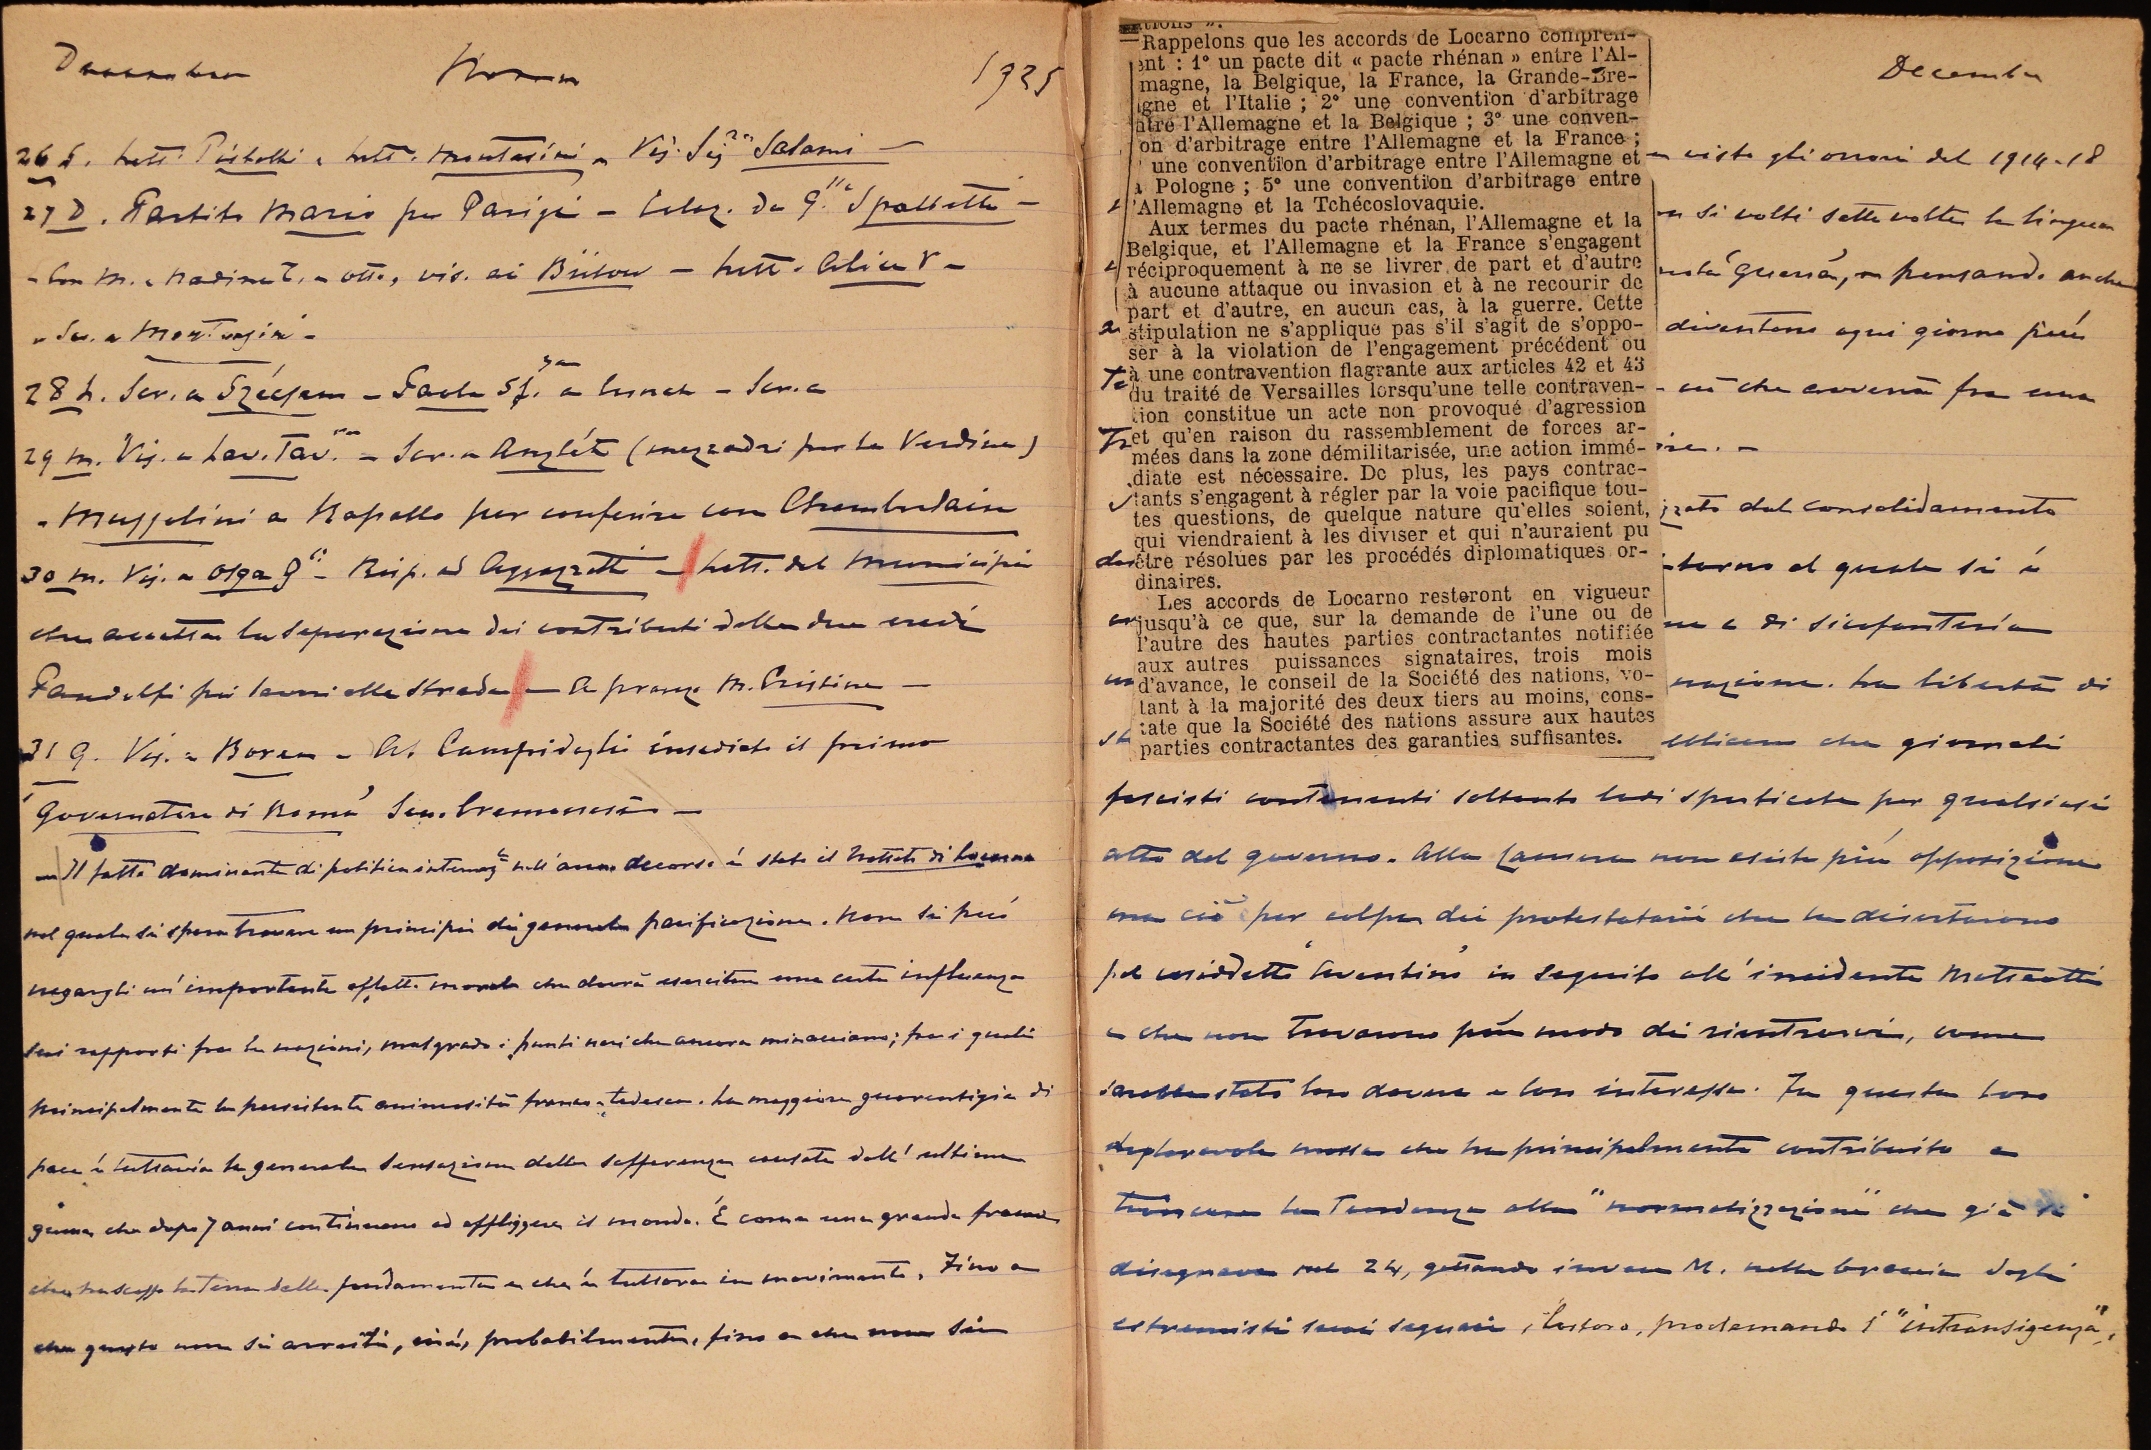 Decembre Roma 1925
26 S. Lett. Pistolli e lett. Montasini - Vis. Sig.ra Salomi -
27 D. Partito Mario per Parigi - Colaz. da G. Spalletti -
- Con M. e Nadine T. e Otto, vis. ai Bülow - Lett. Alice V -
28 L. Scr. a Szécsen - Paolo Sf. a lunch - Scr. a
29 M. Vis. a Lav. Tav. - Scr. a Anglét (mezzadri per la Verdina)
- Mussolini a Rapallo per conferire con Chamberlain
30 M. Vis. a Olga G - Risp. ad Aggazzotti - Lett. del Municipio
che accetta la separazione dei contributi delle due eredi
Pandolfi pei lavori alla strada - A pranzo M. Cristina -
31 G. Vis. a Borea - Al Campidoglio insediato il primo
"Governatore di Roma" Sen. Cremonesi -
- Il fatto dominante di politica internaz.le nell'anno decorso è stato il Trattato di Locarno
nel quale si spera trovare un principio di generale pacificazione. Non si può
negargli un'importante effetto morale che dovrà esercitare una certa influenza
sui rapporti fra le nazioni, malgrado i punti neri che ancora minacciano; fra i quali
principalmente la persistente animosità franco-tedesca. La maggiore guarentigia di
pace è tuttavia la generale sensazione delle sofferenze causate dall'ultima
guerra che dopo 7 anni continuano ad affliggere il mondo. È come una grande frana
che ha scosso la terra dalle fondamenta e che è tuttora in movimento. Fino a
che questo non si arresti, cioè, probabilmente, fino a che non sia
Decembre
ations ».
Rappelons que les accords de Locarno compren-
ent : 1° un pacte dit « pacte rhénan » entre l'Al-
magne, la Belgique, la France, la Grande-Bre-
gne et l'Italie ; 2° une convention d'arbitrage
ntre l'Allemagne et la Belgique ; 3° une conven-
on d'arbitrage entre l'Allemagne et la France ;
une convention d'arbitrage entre l'Allemagne et
a Pologne ; 5° une convention d'arbitrage entre
l'Allemagne et la Tchécoslovaquie.
Aux termes du pacte rhénan, l'Allemagne et la
Belgique, et l'Allemagne et la France s'engagent
réciproquement à ne se livrer de part et d'autre
à aucune attaque ou invasion et à ne recourir de
part et d'autre, en aucun cas, à la guerre. Cette
stipulation ne s'applique pas s'il s'agit de s'oppo-
ser à la violation de l'engagement précédent ou
à une contravention flagrante aux articles 42 et 43
du traité de Versailles lorsqu'une telle contraven-
tion constitue un acte non provoqué d'agression
et qu'en raison du rassemblement de forces ar-
mées dans la zone démilitarisée, une action immé-
diate est nécessaire. De plus, les pays contrac-
tants s'engagent à régler par la voie pacifique tou-
tes questions, de quelque nature qu'elles soient,
qui viendraient à les diviser et qui n'auraient pu
être résolues par les procédés diplomatiques or-
dinaires.
Les accords de Locarno resteront en vigueur
jusqu'à ce que, sur la demande de l'une ou de
l'autre des hautes parties contractantes notifiée
aux autres puissances signataires, trois mois
d'avance, le conseil de la Société des nations, vo-
tant à la majorité des deux tiers au moins, cons-
tate que la Société des nations assure aux hautes
parties contractantes des garanties suffisantes.
visto gli orrori del 1914-18
si volti sette volte la lingua
guerra, e pensando anche
diventano ogni giorno più
- ciò che avverrà fra una
dal consolidamento
al quale si è
e di
nazione. La libertà di
che giornali
fascisti contenenti soltanto lodi sperticate per qualsiasi
atto del governo. Alla Camera non esiste più opposizione
ma ciò per colpa dei protestatarii che la disertarono
pel cosiddetto "Aventino" in seguito all'incidente Matteotti
e che non trovarono più modo di rientrarvi, come
sarebbe stato loro dovere e loro interesse. Fu questa loro
deplorevole mossa che ha principalmente contribuito a
troncare la tendenza alla "normalizzazione" che già si
disegnava nel 24, gettando invece M. nelle braccia degli
estremisti suoi seguaci. Costoro, proclamando l'"intransigenza",